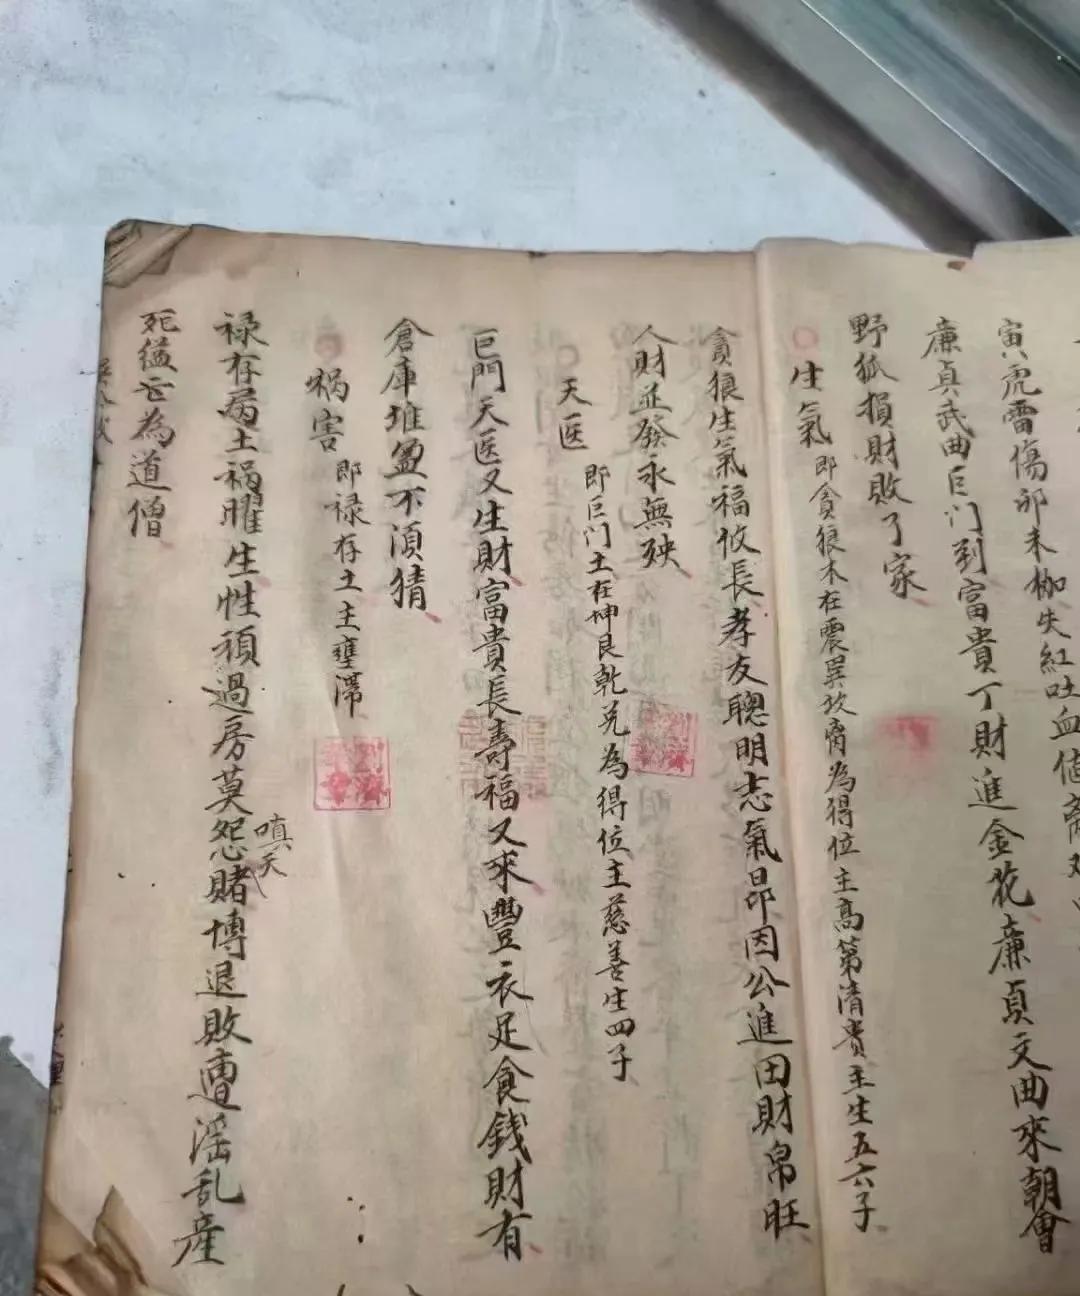 寅虎雷傷卯未枷失紅吐血值
廉貞武曲巨门到富貴丁財進金花廉貞文曲來朝會
野狐損財敗了家
生氣 即貪狼木在震巽坎离為得位主高第清貴主生五六子
貪狼生氣福攸長孝友聰明志氣昂因公進田財帛旺
人財並發永無殃
天医 即巨门土在坤艮乾兑為得位主慈善生四子
巨門天医又生財富貴長壽福又來豐衣足食钱財有
倉庫堆盈不須猜
祸害 即禄存土主壅滯
禄存屬土禍曜生性頑過房莫怨賭博退敗遭淫乱産
嗔天
死 為道僧